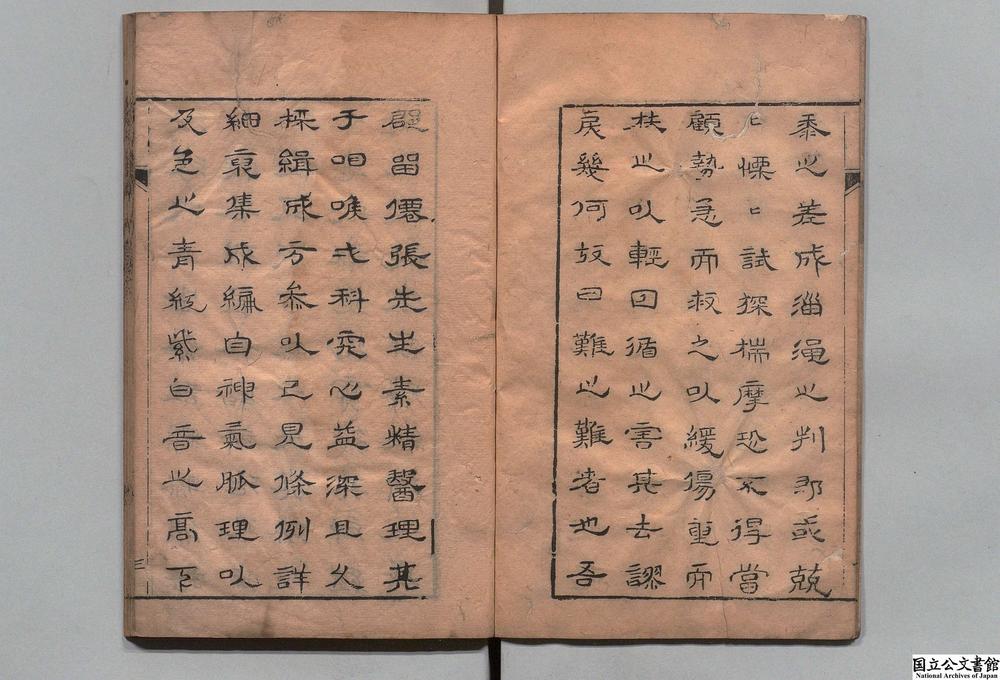 黍之差成淄澠之判耶或兢
〻慄〻試探揣摩恐不得當
顧勢急而救之以緩傷重而
扶之以輕因循之害其去謬
戾幾何故曰難之難者也吾
邑留僊張先生素精醫理其
于咽喉弌科究心益深且久
採緝成方參以己見條例詳
細裒集成編自神氣脈理以
及色之青紅紫白音之高下
三
国立公文書館
National Archives of Japan